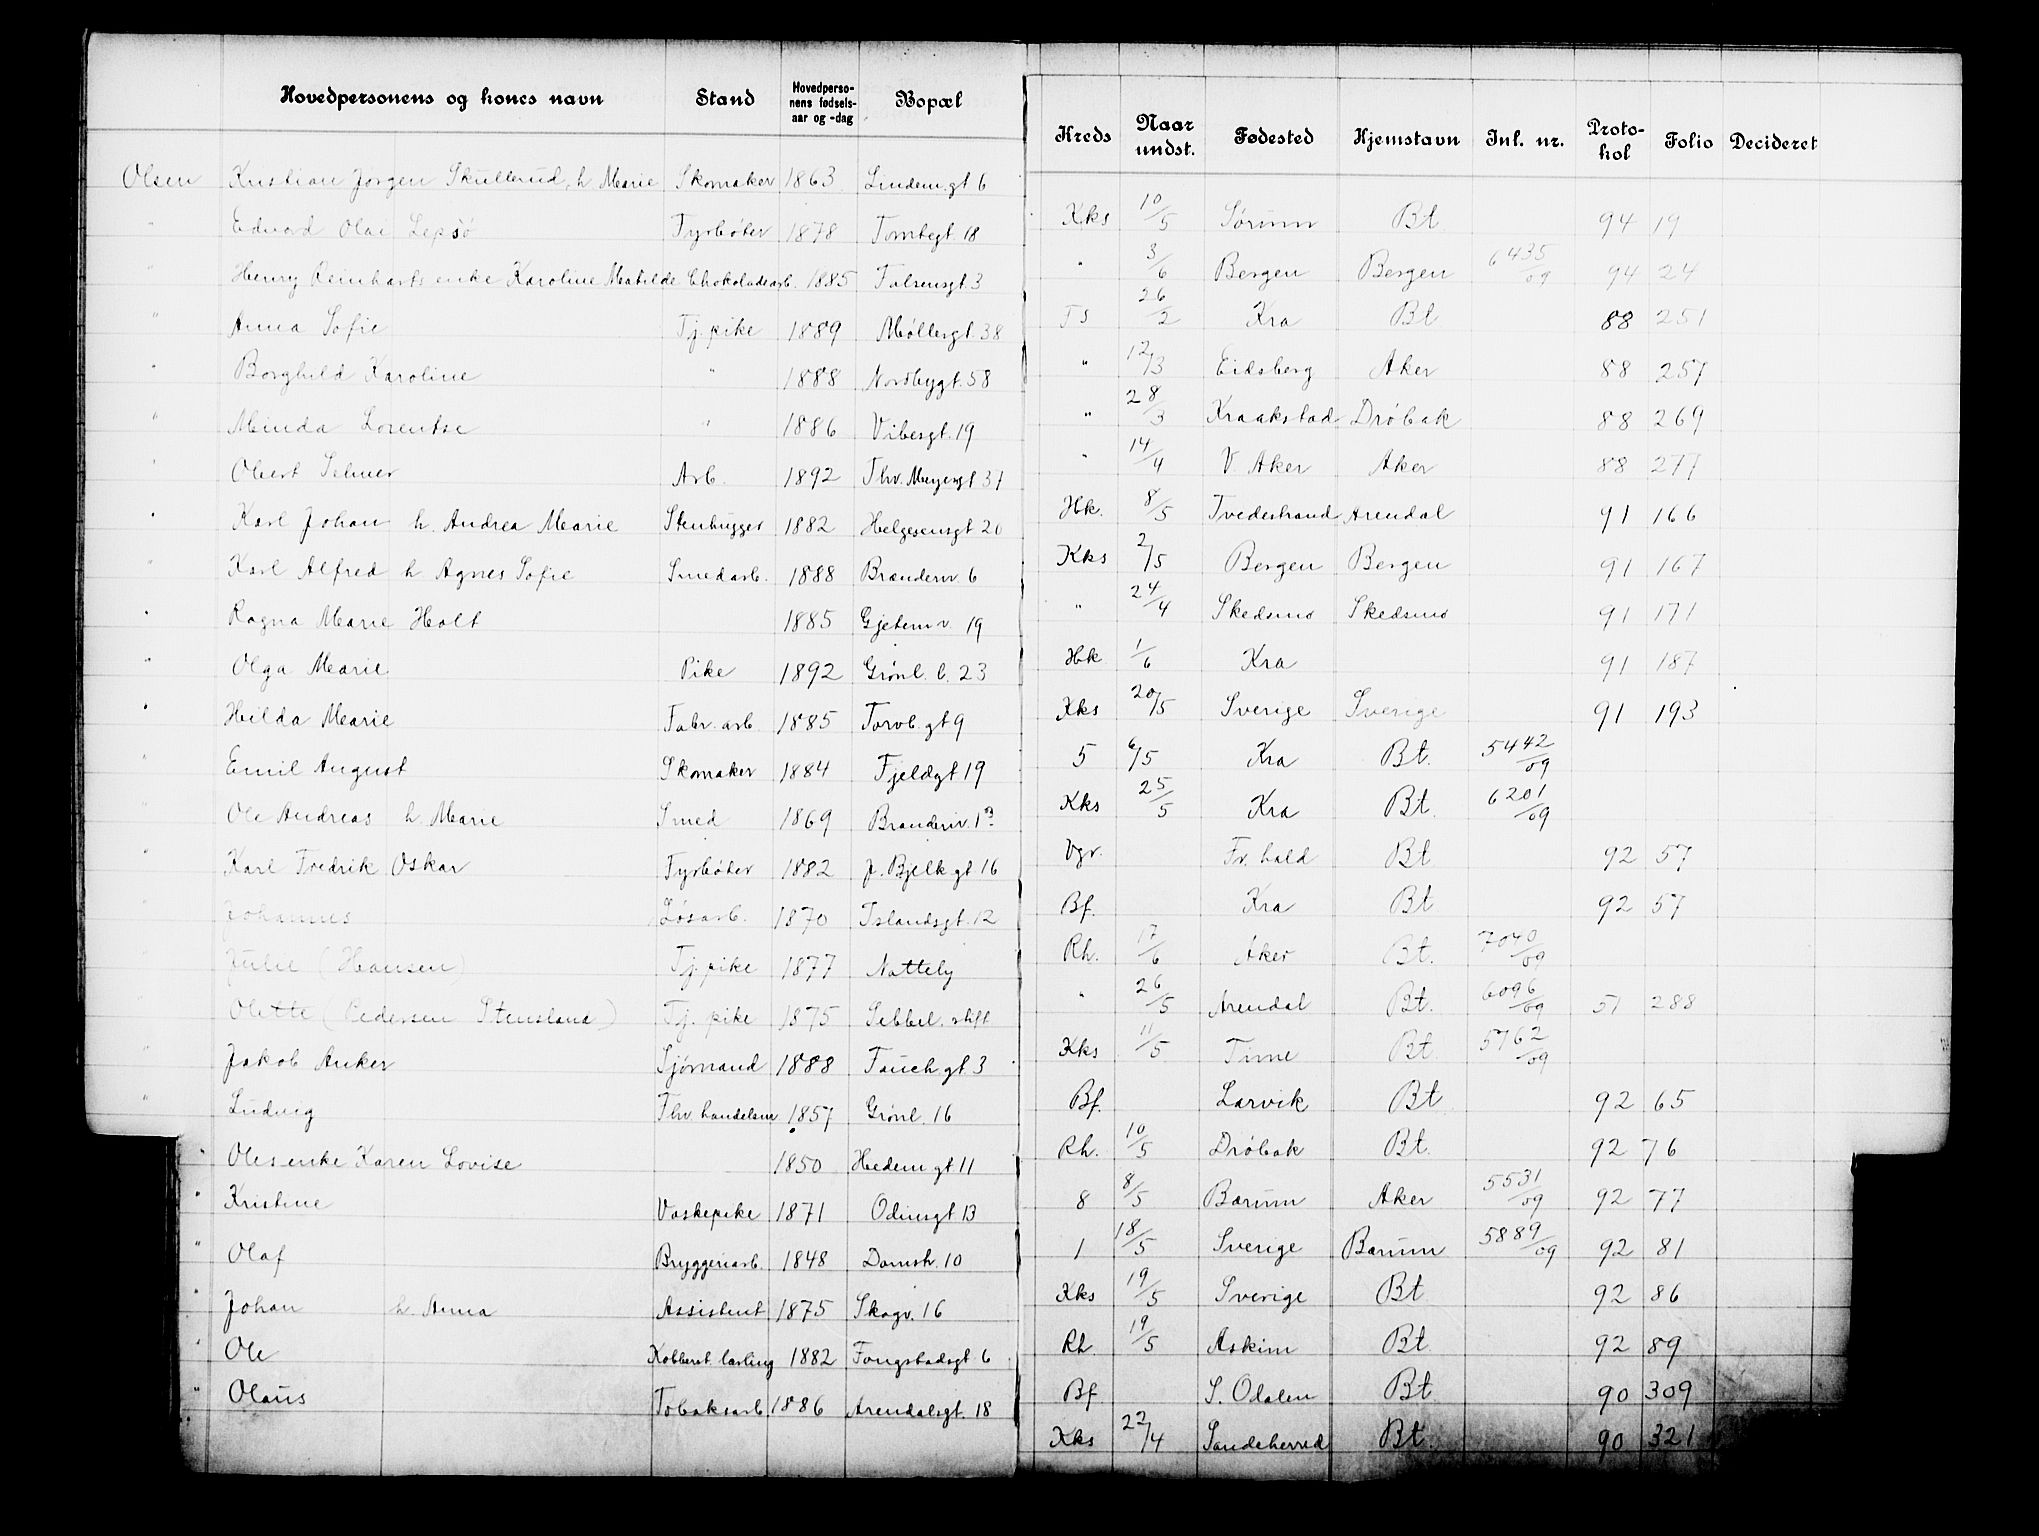 Hovedpersonens og kones navn Stand Hovedpersonens fødselsaar og -dag Bopæl Kreds Naar undst. Fødested Hjemstavn Inl. nr. Protokol Folio Decideret
Olsen Kristian Jørgen Skullerud, h Marie Skomaker 1863 Lindemgt 6 Kks 10/5 Sørum Bt. 94 19
" Edvard Olai Lepsö Fyrbøter 1878 Tomtegt. 18 " 3/6 Bergen Bergen 6435/09 94 24
" Henry Reinharts enke Karoline Matilde Chokoladearb. 1885 Falsensgt. 3 Ts 26/2 Kra Bt 88 251
" Anna Sofie Tj. pike 1889 Møllergt. 38 " 12/3 Eidsberg Aker 88 257
" Borghild Karoline " 1888 Nordbygt. 58 " 28/3 Kraakstad Drøbak 88 269
" Minda Lorentse " 1886 Vibesgt. 19 " 14/4 V. Aker Aker 88 277
" Obert Selmer Arb. 1892 Thv. Meyersgt 37 Hk. 8/5 Tvedestrand Arendal 91 166
" Karl Johan h. Andrea Marie Stenhugger 1882 Helgesensgt 20 Kks 2/5 Bergen Bergen 91 167
" Karl Alfred h Agnes Sofie Smedarb. 1888 Brænderiv. 6 " 24/4 Skedsmo Skedsmo 91 171
" Ragna Marie Holt 1885 Gjetemv. 19 Hk 1/6 Kra 91 187
" Olga Marie Pike 1892 Grønl. b. 23 Kks 20/5 Sverige Sverige 91 193
" Hilda Marie Fabr. arb. 1885 Torvb. gt 9 5 6/5 Kra Bt. 5442/09
" Emil August Skomaker 1884 Fjeldgt 19 Kks 25/5 Kra Bt. 6201/09
" Ole Andreas h. Marie Smed 1869 Brænderiv. 1B Vgr. Fr. hald Bt 92 57
" Karl Fredrik Oskar Fyrbøter 1882 J. Bjelk gt 16 Bf. Kra Bt 92 57
" Johannes Løsarb. 1870 Islandsgt. 12 Rh. 17/6 Aker Bt. 7040/09
" Julie (Hansen) Tj. pike 1877 Natteby " 26/5 Arendal Bt. 6096/09 51 288
" Olette (Pedersen Stensland) Tj. pike 1875 Sebbel. stift Kks 11/5 Time Bt 5762/09
" Jakob Anker Sjømand 1888 Fauch gt 3 Bf. Larvik Bt 92 65
" Ludvig Fhv. handelsm 1857 Grønl. 16 Rh. 10/5 Drøbak Bt. 92 76
" Oles enke Karen Lovise 1850 Hedem gt. 11 8 8/5 Bærum Aker 5531/09 92 77
" Kristine Vaskepike 1871 Odinsgt 13 1 18/5 Sverige Bærum 5889/09 92 81
" Olaf Bryggeriarb. 1848 Damstr. 10 Kks 19/5 Sverige Bt 92 86
" Johan h. Anna Assistent 1875 Skogv. 16 Rh. 19/5 Askim Bt. 92 89
" Ole Kobberst. lærling 1882 Tongstadsgt 6 Bf S. Odalen Bt 90 309
" Olaus Tobaksarb. 1886 Arendalsgt. 18 Kks 22/4 Sandeherred Bt. 90 321